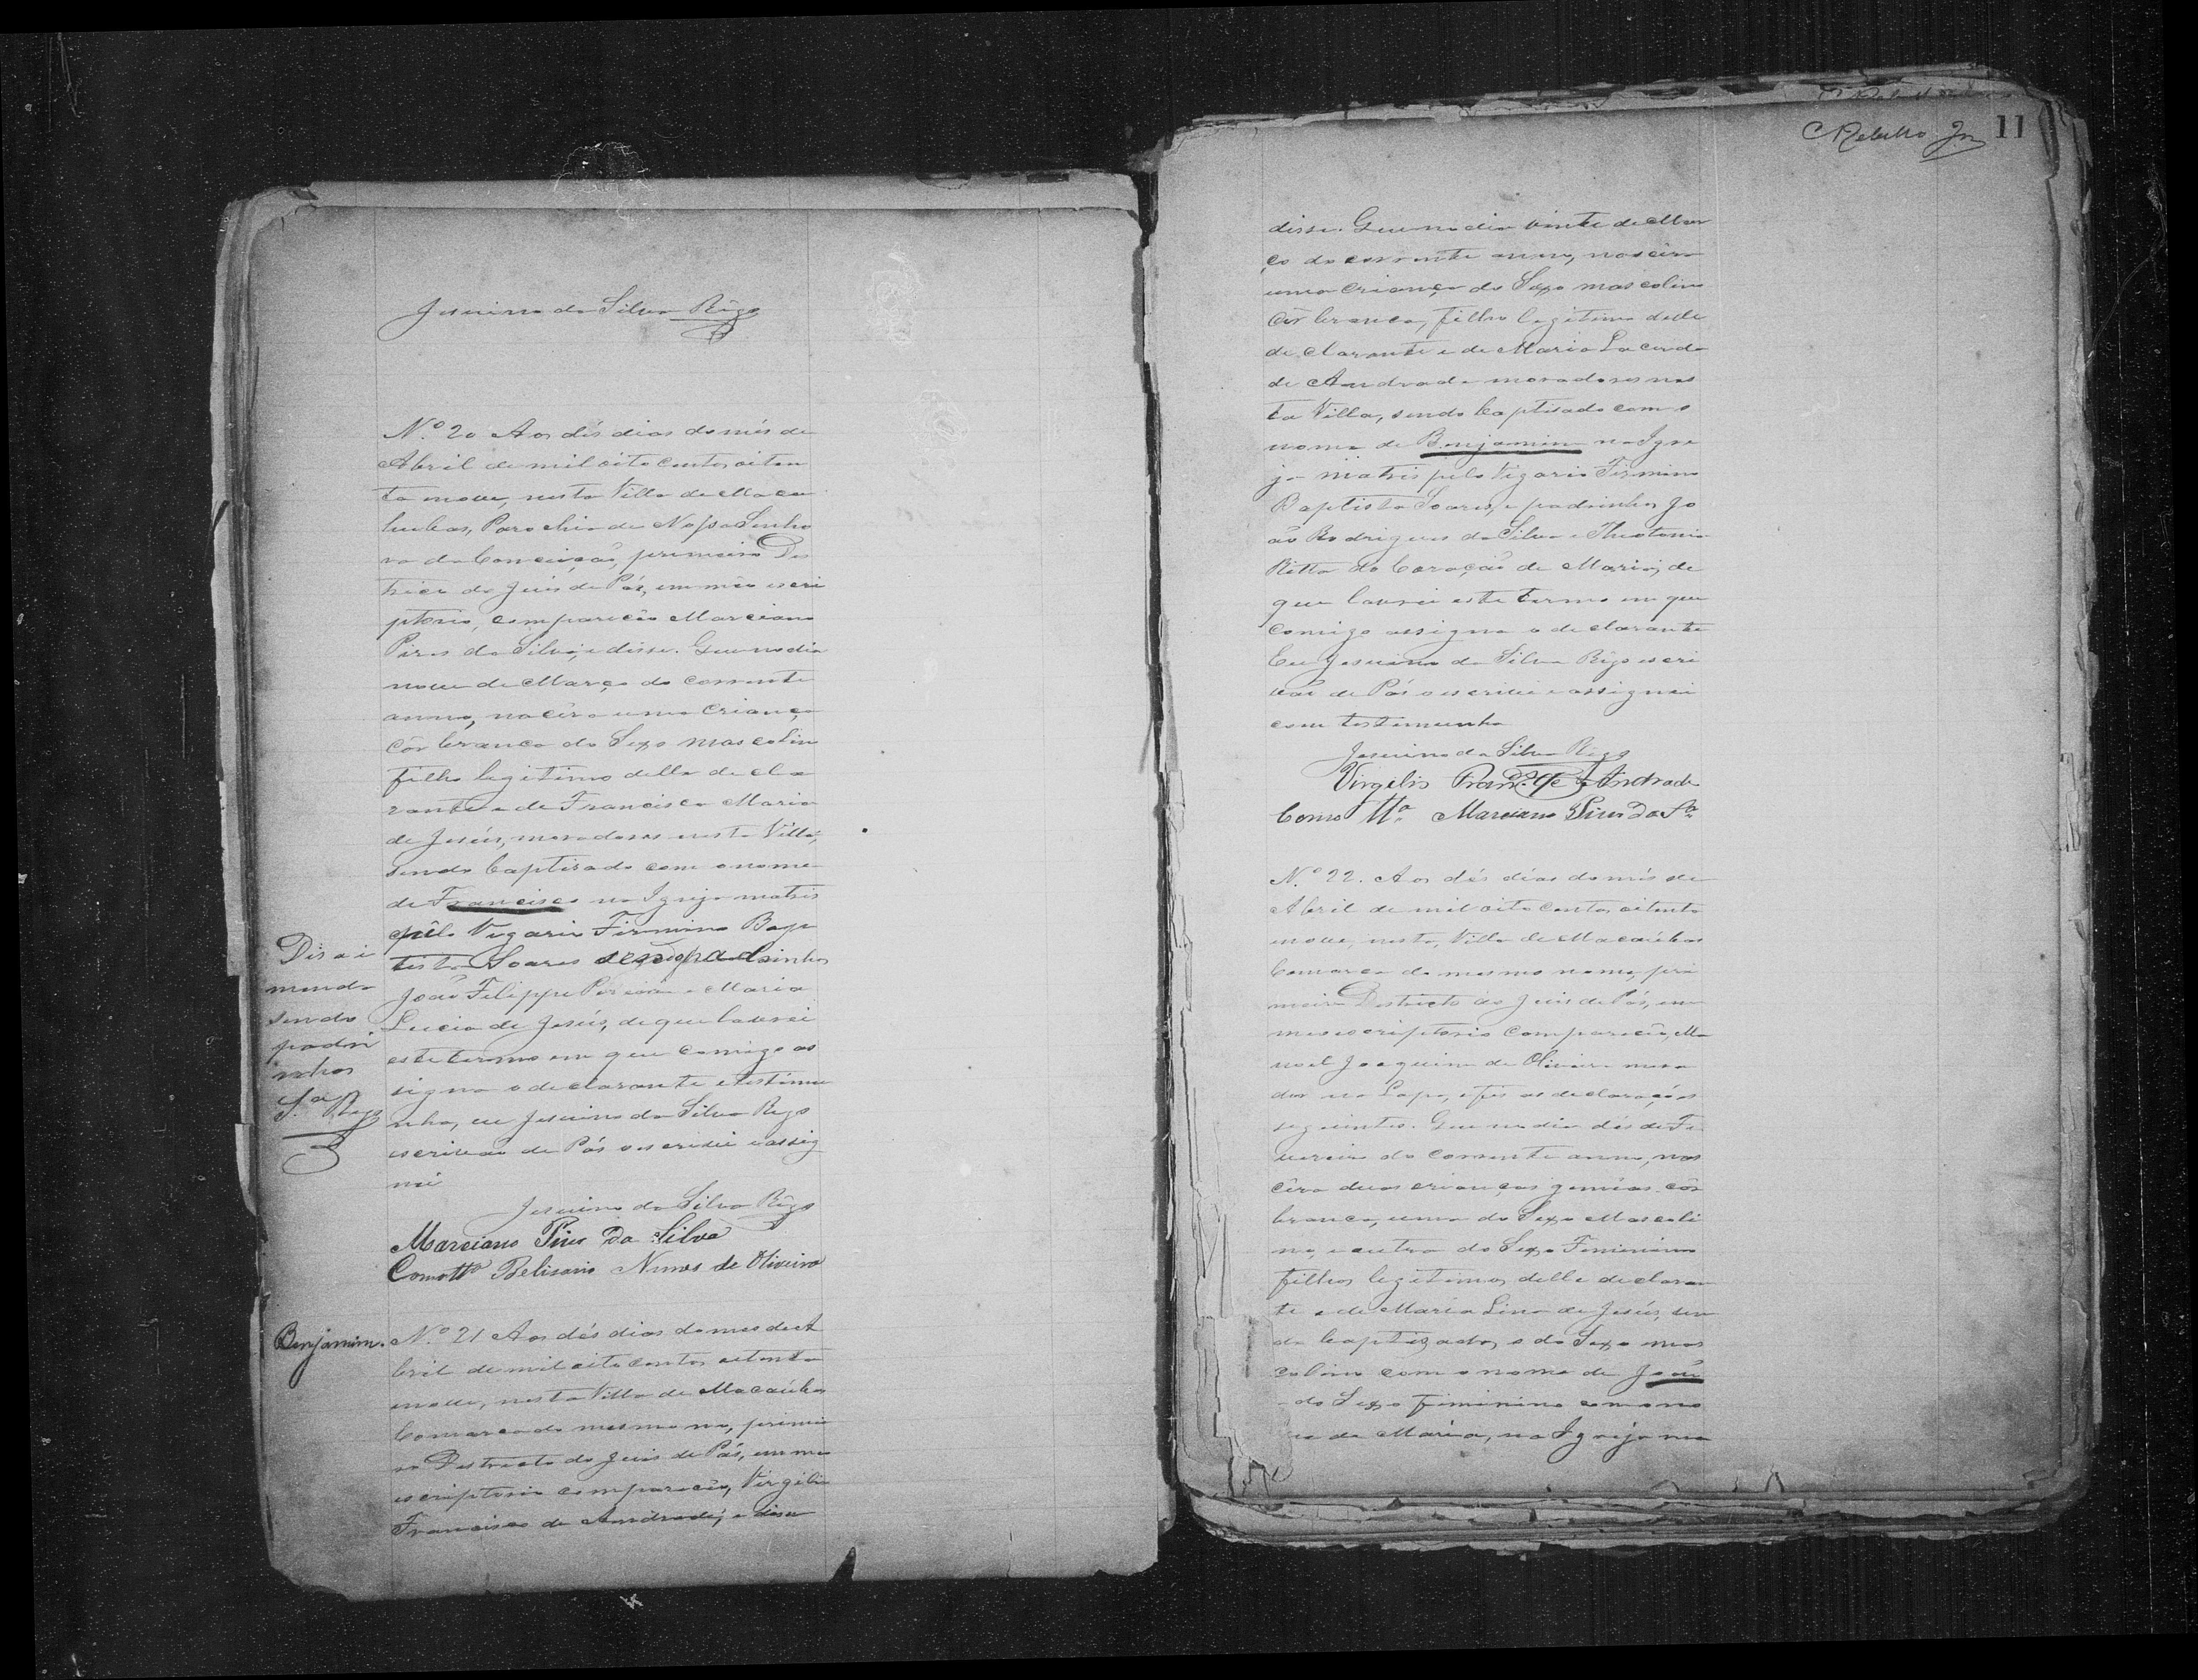 Jesuino da Silva Rêgo
N.º 20 Aos dés dias do mês de
Abril de mil oito centos oiten
ta enove, nesta Villa de Macau
hubas, Parochia de Nossa Senho
ra da Conceição, primeiro Des
tricto do Juis de Pás, em meu escri
ptorio, compareceo Marciano
Pires da Silva, e disse. Que no dia
nove de Março do corrente
anno, nacêra uma criança
côr branca do Sexo mascolino
filho legitimo delle decla
rante e de Francisca Maria
de Jesús, moradores nesta Villa,
sendo baptisado com o nome
de Francisco na Igreja matris
pelo Vigario Firmino Bap
tista Soares sendo padrinhos
João Filippe Pereira e Maria
Lucia de Jesús, de que lavrei
este termo em que comigo as
signa o declarante e testimu
nha, eu Jesuino da Silva Rego
escrivão de Pás o escrivi e assig
nei
Jesuino da Silva Rêgo
Marciano Pires Da Silva
Como ttª Belisario Nunes de Oliveira
Dis a i
menda
sendo
padri
nhos
Sª Rego
Benjamim.
N.º 21 Aos dés dias do mes de A
bril de mil oito centos oitenta
enove, nesta Villa de Macaúbas
Comarca do mesmo no, primei
ro Destricto do Juis de Pás, em meu
escriptorio compareceo, Virgilio
Francisco de Andrade, e disse
11
disse. Que no dia vinte de Mar
ço do corrente anno, nascêra
uma criança do Sexo mascolino
côr branca, filho legitimo delle
declarante e de Maria Lacerda
de Andrade moradores nes
ta Villa, sendo baptisado com o
nome de Benjamim na Igre
ja matris pelo Vigario Firmino
Baptista Soares, e padrinhos Jo
ão Rodrigues da Silva e Theotonia
Ritta do Coração de Maria, de
que lavrei este termo em que
comigo assigna o declarante
Eu Jesuino da Silva Rêgo escri
vão de Pás o escrivi e assignei
com testemunha
Jesuino da Silva Rêgo
Virgilio Franc.co de Andrade
Como ttª Marciano Pires Da Sª
N.º 22. Aos dés dias do mês de
Abril de mil oito centos oitenta
enove, nesta, Villa de Macaúbas
Comarca do mesmo nome, pri
meiro Destricto do Juis de Pás, em
meu escriptorio compareceo, Ma
noel Joaquim de Oliveira mora
dor na Lapa, e fes as declarações
seguintes. Que no dia dés de Fe
vereiro do corrente anno, nas
cêra duas crianças gemias côr
branca, uma do Sexo Mascoli
no, e outra do Sexo Feminino
filhos legitimos delle declaran
te e de Maria Lina de Jesús, sen
do baptizados, o do Sexo mas
colino com o nome de João
do Sexo feminino com o no
me de Maria, na Igreja ma